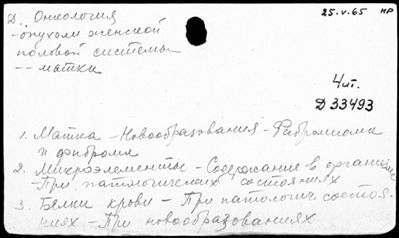 Д. Онкология
25.V.65 НР
-опухоли женской
половой системы
-- матки
4чт.
Д 33493
1. Матка - Новообразования - Фибромиома
и фиброма
2. Микроэлементы - Содержание в организме
- При патологических состояниях
3. Белки крови - При патологич. состоя-
ниях - При новообразованиях